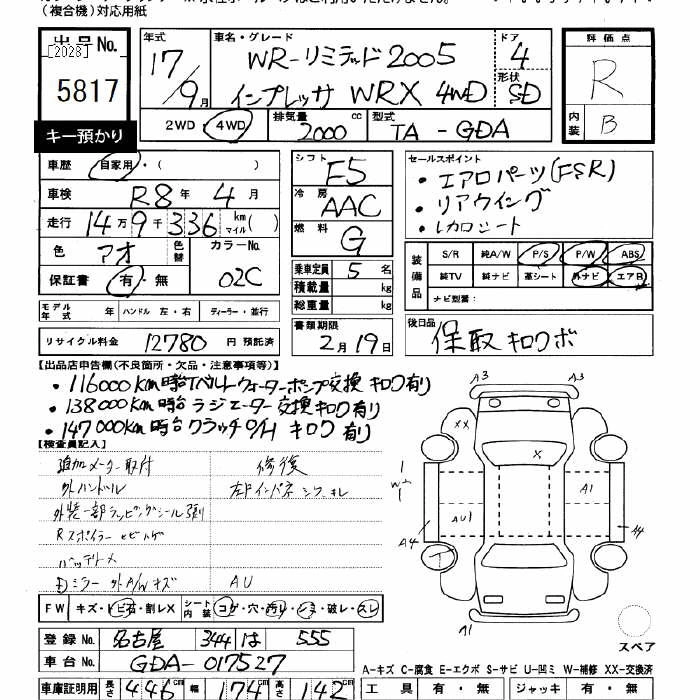 （複合機）対応用紙
出品No.
[2028]
5817
キー預かり
年式
17/9月
車名・グレード
WR-リミテッド2005
インプレッサ WRX 4WD
ドア
4
形状
SD
2WD 4WD
排気量
2000 cc
型式
TA-GDA
評価点
R
内装
B
車歴 自家用・( )
車検 R8年 4月
走行 14万9千336 km マイル( )
色 アオ 色替 カラーNo. 02C
保証書 有・無
モデル年式 年 ハンドル 左・右 ディーラー・並行
リサイクル料金 12780 円 預託済
シフト F5
冷房 AAC
燃料 G
乗車定員 5 名
積載量 kg
総重量 kg
書類期限
2月19日
セールスポイント
・エアロパーツ(FSR)
・リアウイング
・レカロシート
装備品
S/R 純A/W P/S P/W ABS
純TV 純ナビ 革シート 外ナビ エアB
ナビ型番：
後日品
保取キロクボ
【出品店申告欄(不良箇所・欠品・注意事項等)】
・116000Km時Tベルトウォーターポンプ交換キロク有り
・138000Km時ラジエーター交換キロク有り
・147000Km時クラッチO/Hキロク有り
【検査員記入】
追加メーター取付 修復
外ハンドル 左フインパネ
外装一部ラッピングシール
Rスポイラー
バッテリー×
Dミラー 外A/Wキズ AU
FW キズ・トビ石・割レX シート内装 コゲ・穴・汚り・シミ・破レ・スレ
登録No. 名古屋 344 は 555
車台No. GDA-017527
車庫証明用 長さ 446cm 幅 174cm 高さ 142cm
A3 A3
XX
X
W
A1
AU1
A4
A4
A1
スペア
A-キズ C-腐食 E-エクボ S-サビ U-凹ミ W-補修 XX-交換済
工具 有・無 ジャッキ 有・無